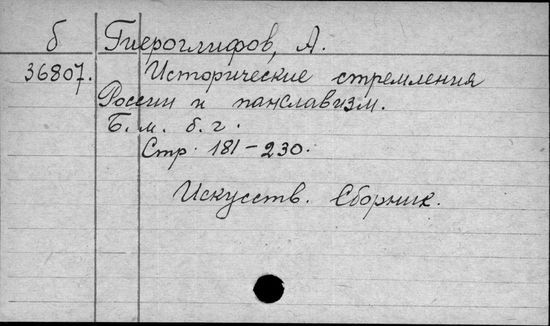 б Гиероглифов, А.
36807. Исторические стремления
России и панславизм.
Б. м. б. г.
Стр. 181-230.
Искусств. Сборник.